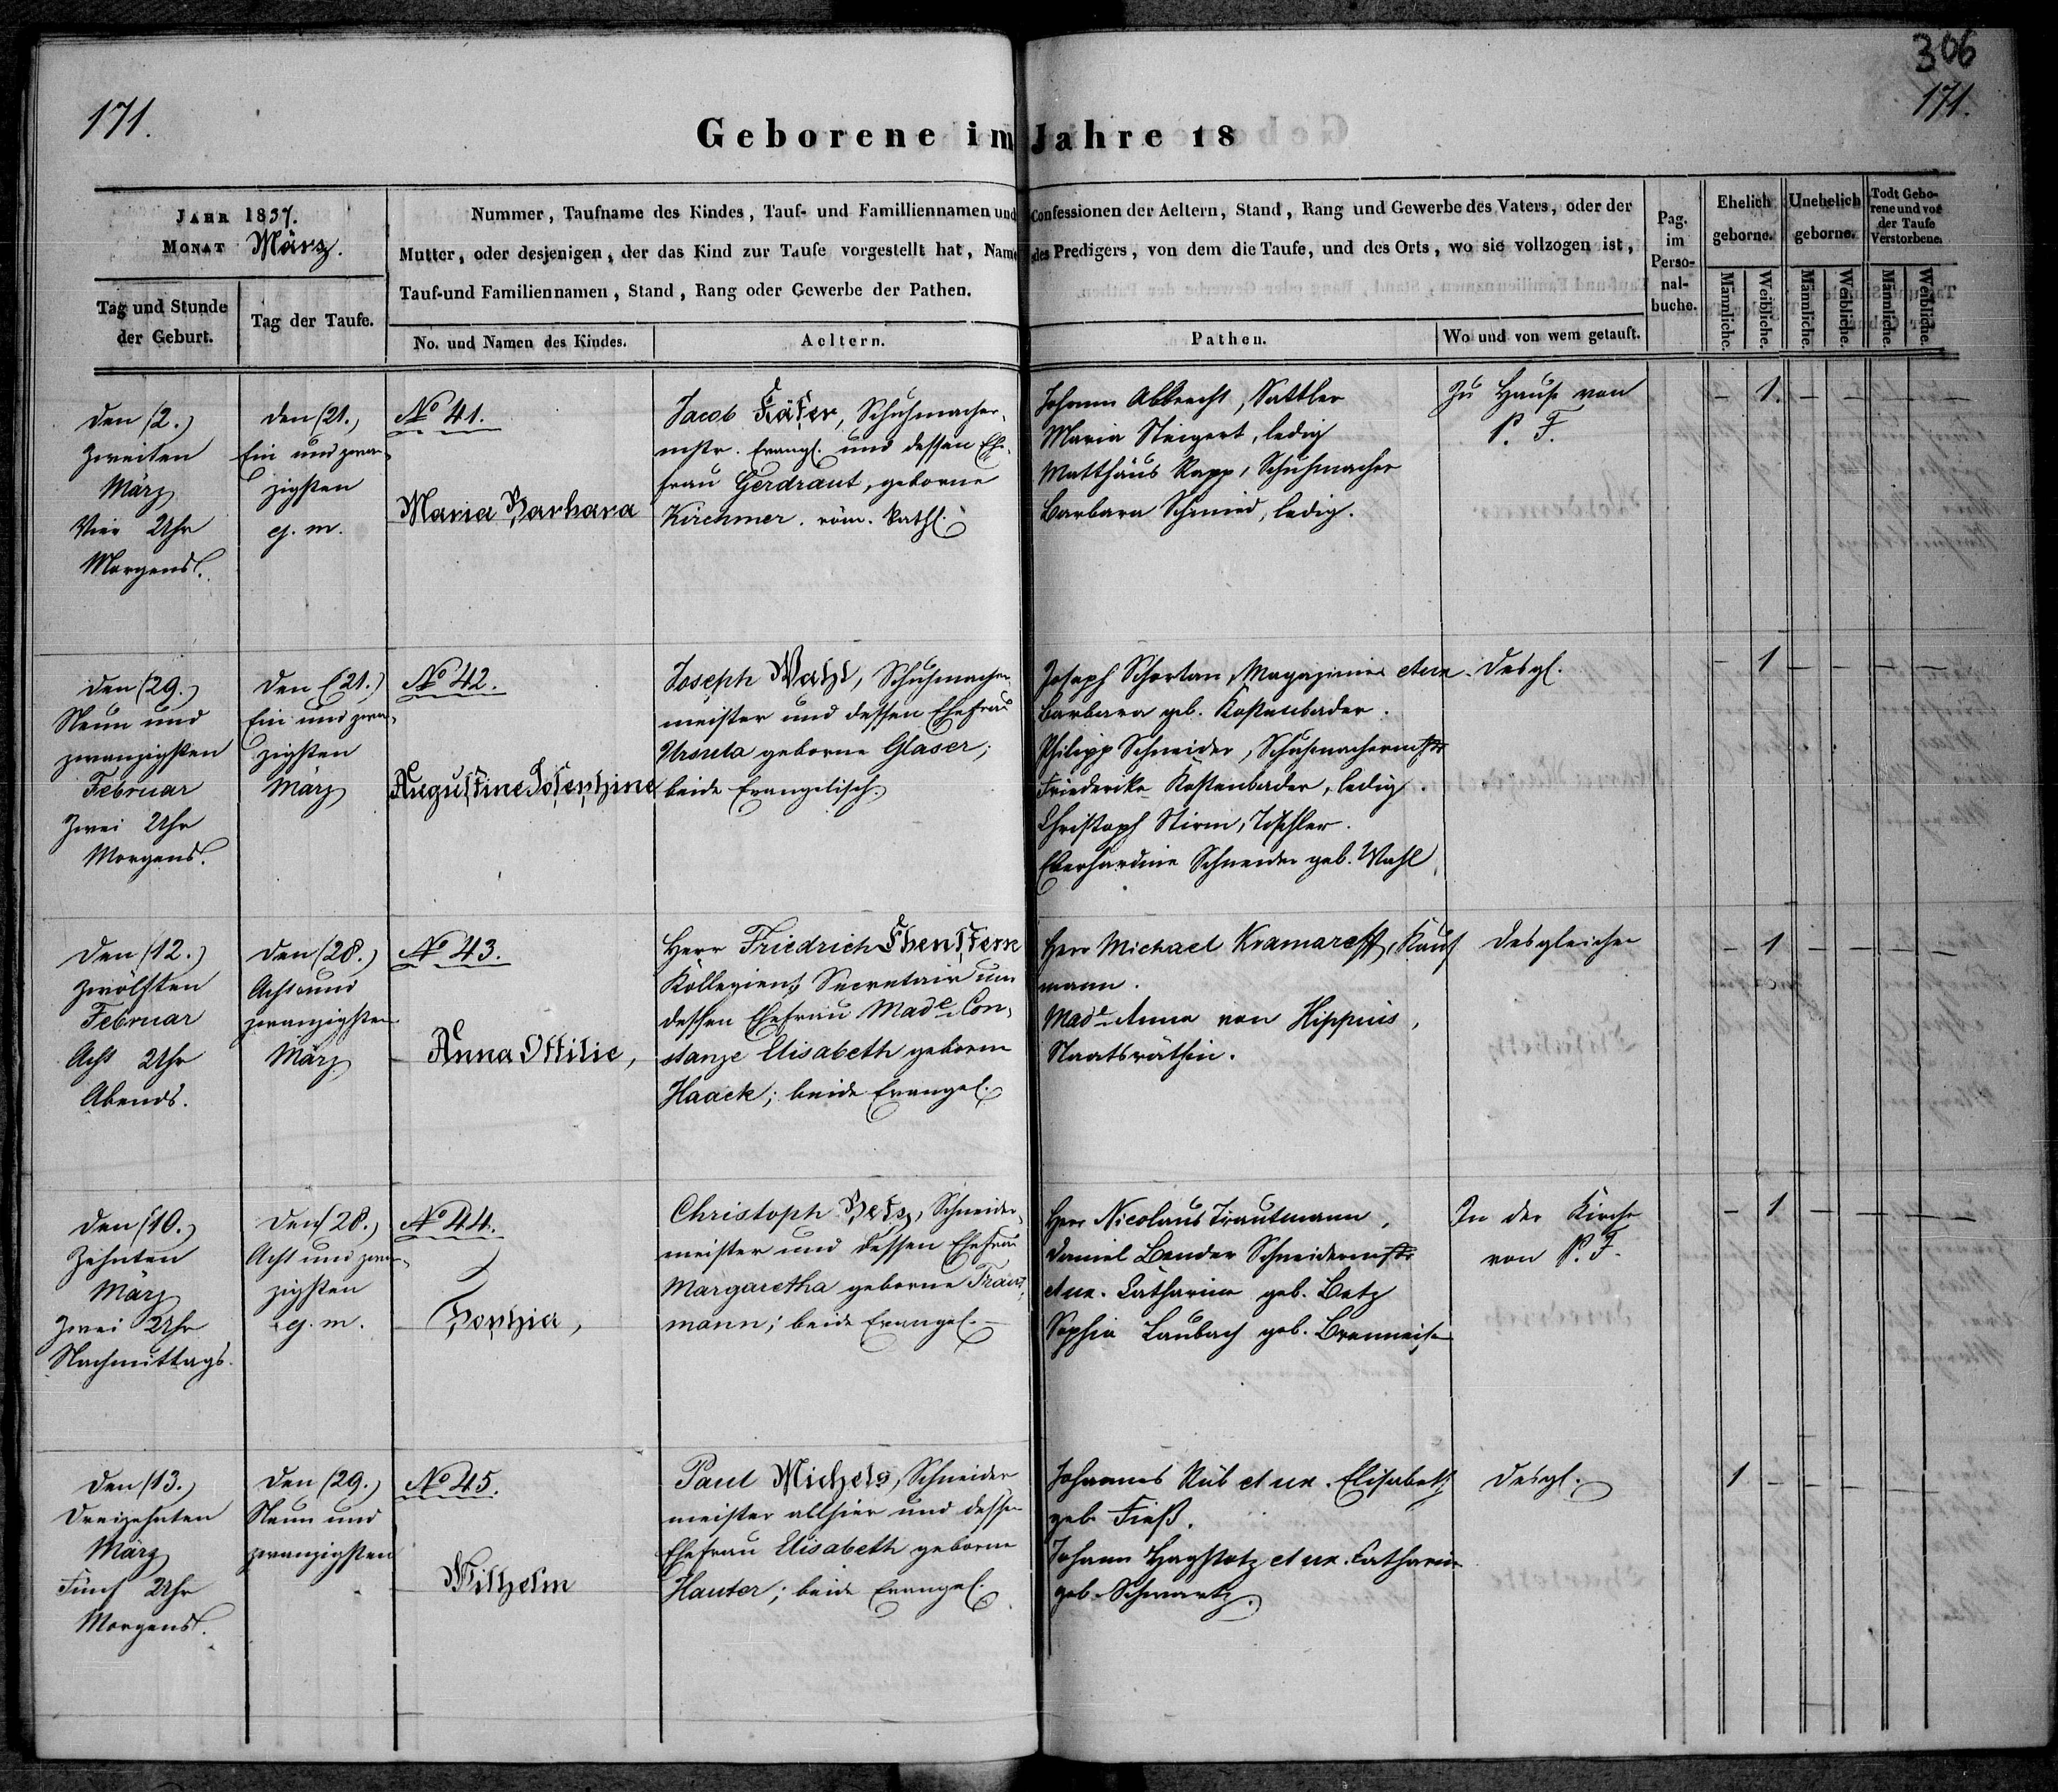 306
171.
171.
Geborene im Jahre 18
JAHR 1837.
MONAT März.
Nummer, Taufname des Kindes, Tauf- und Familliennamen und Confessionen der Aeltern, Stand, Rang und Gewerbe des Vaters, oder der
Mutter, oder desjenigen, der das Kind zur Taufe vorgestellt hat, Name des Predigers, von dem die Taufe, und des Orts, wo sie vollzogen ist,
Tauf-und Familiennamen, Stand, Rang oder Gewerbe der Pathen.
Pag.
im
Perso-
nal-
buche.
Ehelich
geborne.
Unehelich
geborne.
Todt Gebo-
rene und vor
der Taufe
Verstorbene.
Männliche.
Weibliche.
Männliche.
Weibliche.
Männliche.
Weibliche.
Tag und Stunde
der Geburt.
Tag der Taufe.
No. und Namen des Kindes.
Aeltern.
Pathen.
Wo und von wem getauft.
den (2.)
zweiten
März
Vier Uhr
Morgens.
den (21.)
Ein und zwan-
zigsten
ej. m.
No 41.
Maria Barbara
Jacob Schuhmacher-
mstr. Evangl. und dessen Ehe-
frau Gerdraut, geborne
Kirchmer. röm. kathl.
Johann Albrecht, Sattler
Maria Steigert, ledig
Matthäus Rapp, Schuhmacher
Barbara Schmid, ledig.
Zu Hause von
P. F.
– 1. – – – –
den (29.)
Neun und
zwanzigsten
Februar
Zwei Uhr
Morgens.
den (21.)
Ein und zwan-
zigsten
März
No 42.
Augustine Josephine
Joseph Wahl, Schuhmacher-
meister und dessen Ehefrau
Ursula geborne Glaser;
beide Evangelisch.
Joseph Schortan, Magazinier et ux.
Barbara geb. Kostenbader.
Philipp Schneider, Schuhmachermstr
Friedericke Kostenbader, ledig.
Christoph Stirm, Tischler.
Eberhardine Schneider geb. Wahl
Desgl.
– 1 – – – –
den (12.)
zwölften
Februar
Acht Uhr
Abends.
den (28.)
Acht und
zwanzigsten
März
No 43.
Anna Ottilie,
Herr Friedrich
Kollegien Secretair und
dessen Ehefrau Made Con-
stanze Elisabeth geborne
Haack; beide Evangel.
Herr Michael Kramareff, Kauf
mann.
Made Anna von Hippius,
Staatsräthin.
desgleichen
– 1 – – – –
den (10.)
Zehnten
März
Zwei Uhr
Nachmittags.
den (28.)
Acht und zwan-
zigsten
ej. m.
No 44.
Sophia,
Christoph Betz, Schneider-
meister und dessen Ehefrau
Margaretha geborne Traut-
mann; beide Evangel. –
Herr Nicolaus Trautmann,
Daniel Bender Schneidermstr
et ux. Catharina geb. Betz
Sophia Laubach geb. Brenneisen
In der Kirche
von P. F.
– 1 – – – –
den (13.)
Dreizehnten
März
Fünf Uhr
Morgens.
den (29.)
Neun und
zwanzigsten
No 45.
Wilhelm
Paul Michels, Schneider
meister allhier und dessen
Ehefrau Elisabeth geborne
Hauter; beide Evangel.
Johannes Rüb et ux. Elisabeth
geb. Fieß.
Johann Hagstotz et ux. Catharina
geb. Schwartz.
desgl.
1 – – – – –